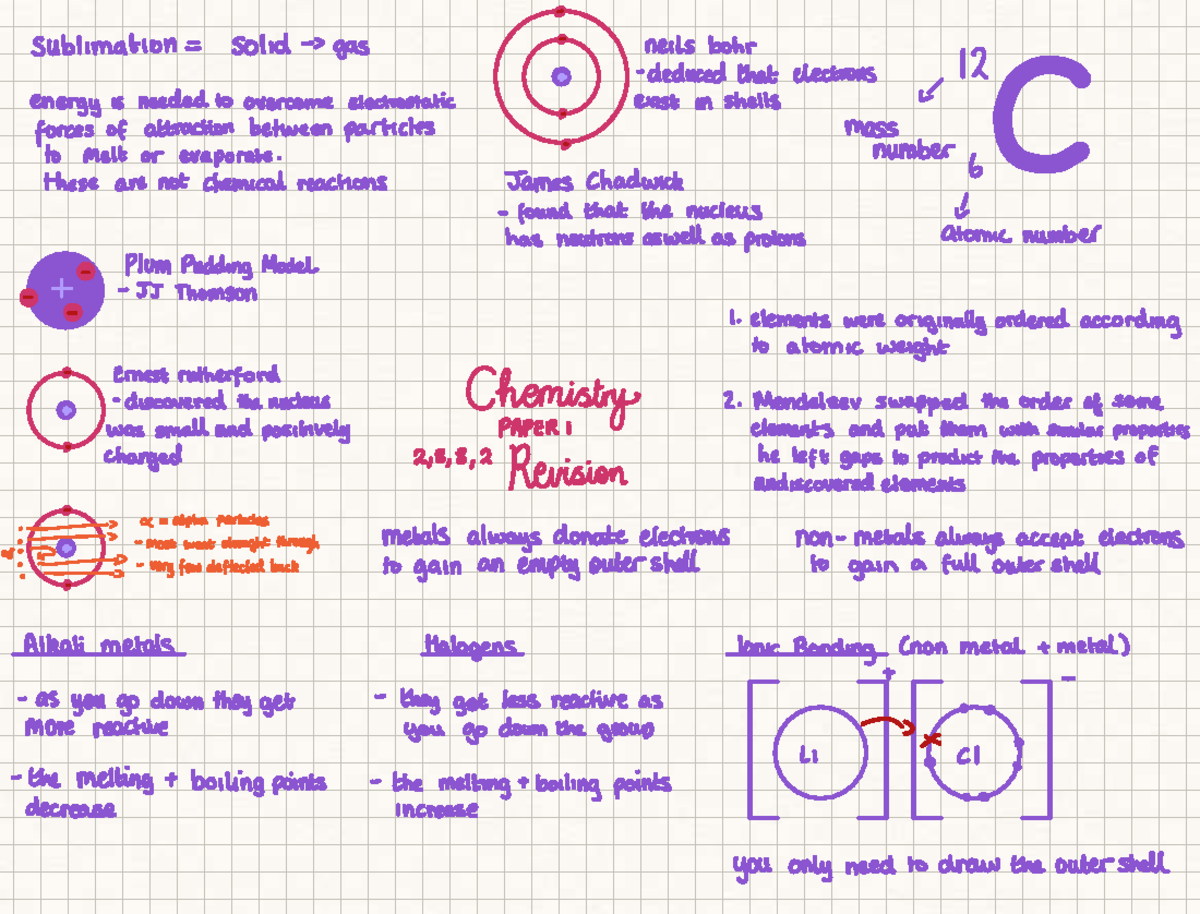 Sublimation = Solid → gas
energy is needed to overcome electrostatic
forces of attraction between particles
to melt or evaporate.
these are not chemical reactions
neils bohr
- deduced that electrons
exist in shells
James Chadwick
- found that the nucleus
has neutrons aswell as protons
12
C
mass
number
6
atomic number
+
-
-
-
Plum Pudding Model
- JJ Thomson
Ernest rutherford
- discovered the nucleus
was small and positively
charged
α = alpha particles
- most went straight through
- very few deflected back
Chemistry
PAPER 1
2,8,8,2 Revision
1. elements were originally ordered according
to atomic weight
2. Mendeleev swapped the order of some
elements and put them with similar properties
he left gaps to predict the properties of
undiscovered elements
metals always donate electrons
to gain an empty outer shell
non-metals always accept electrons
to gain a full outer shell
Alkali metals
- as you go down they get
more reactive
- the melting + boiling points
decrease
Halogens
- they get less reactive as
you go down the group
- the melting + boiling points
increase
Ionic Bonding (non metal + metal)
+
-
Li
Cl
you only need to draw the outer shell